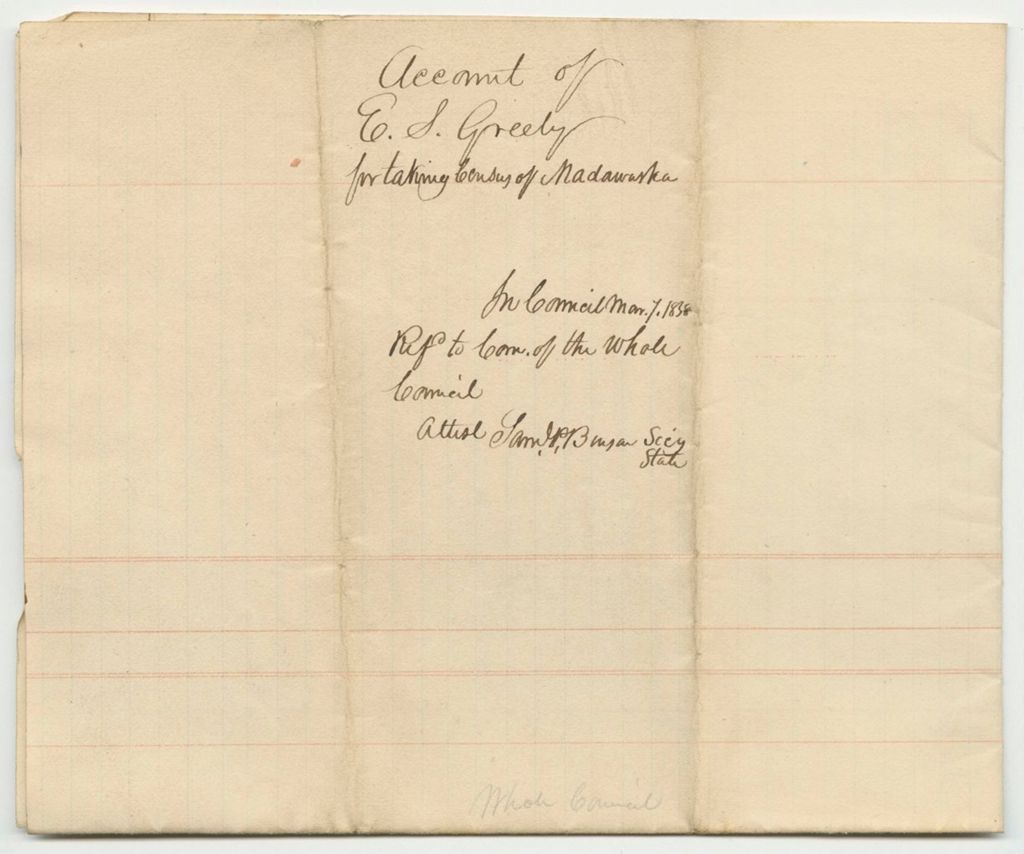 Account of
E. S. Greely
for taking Census of Madawaska
In Council Mar. 7. 1838
Refd to Com. of the Whole
Council
Attest Saml. P. Benson Secy
State
Whole Council